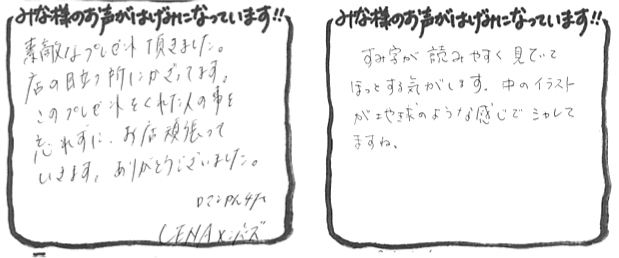 みな様のお声がはげみになっています!!
素敵なプレゼント頂きました。
店の目立つ所にかざってます。
このプレゼントをくれた人の事を
忘れずに、お店頑張って
いきます。ありがとうございました。
みな様のお声がはげみになっています!!
すみ字が読みやすく見ていて
ほっとする気がします。中のイラスト
のような感じでシャレして
ますね。